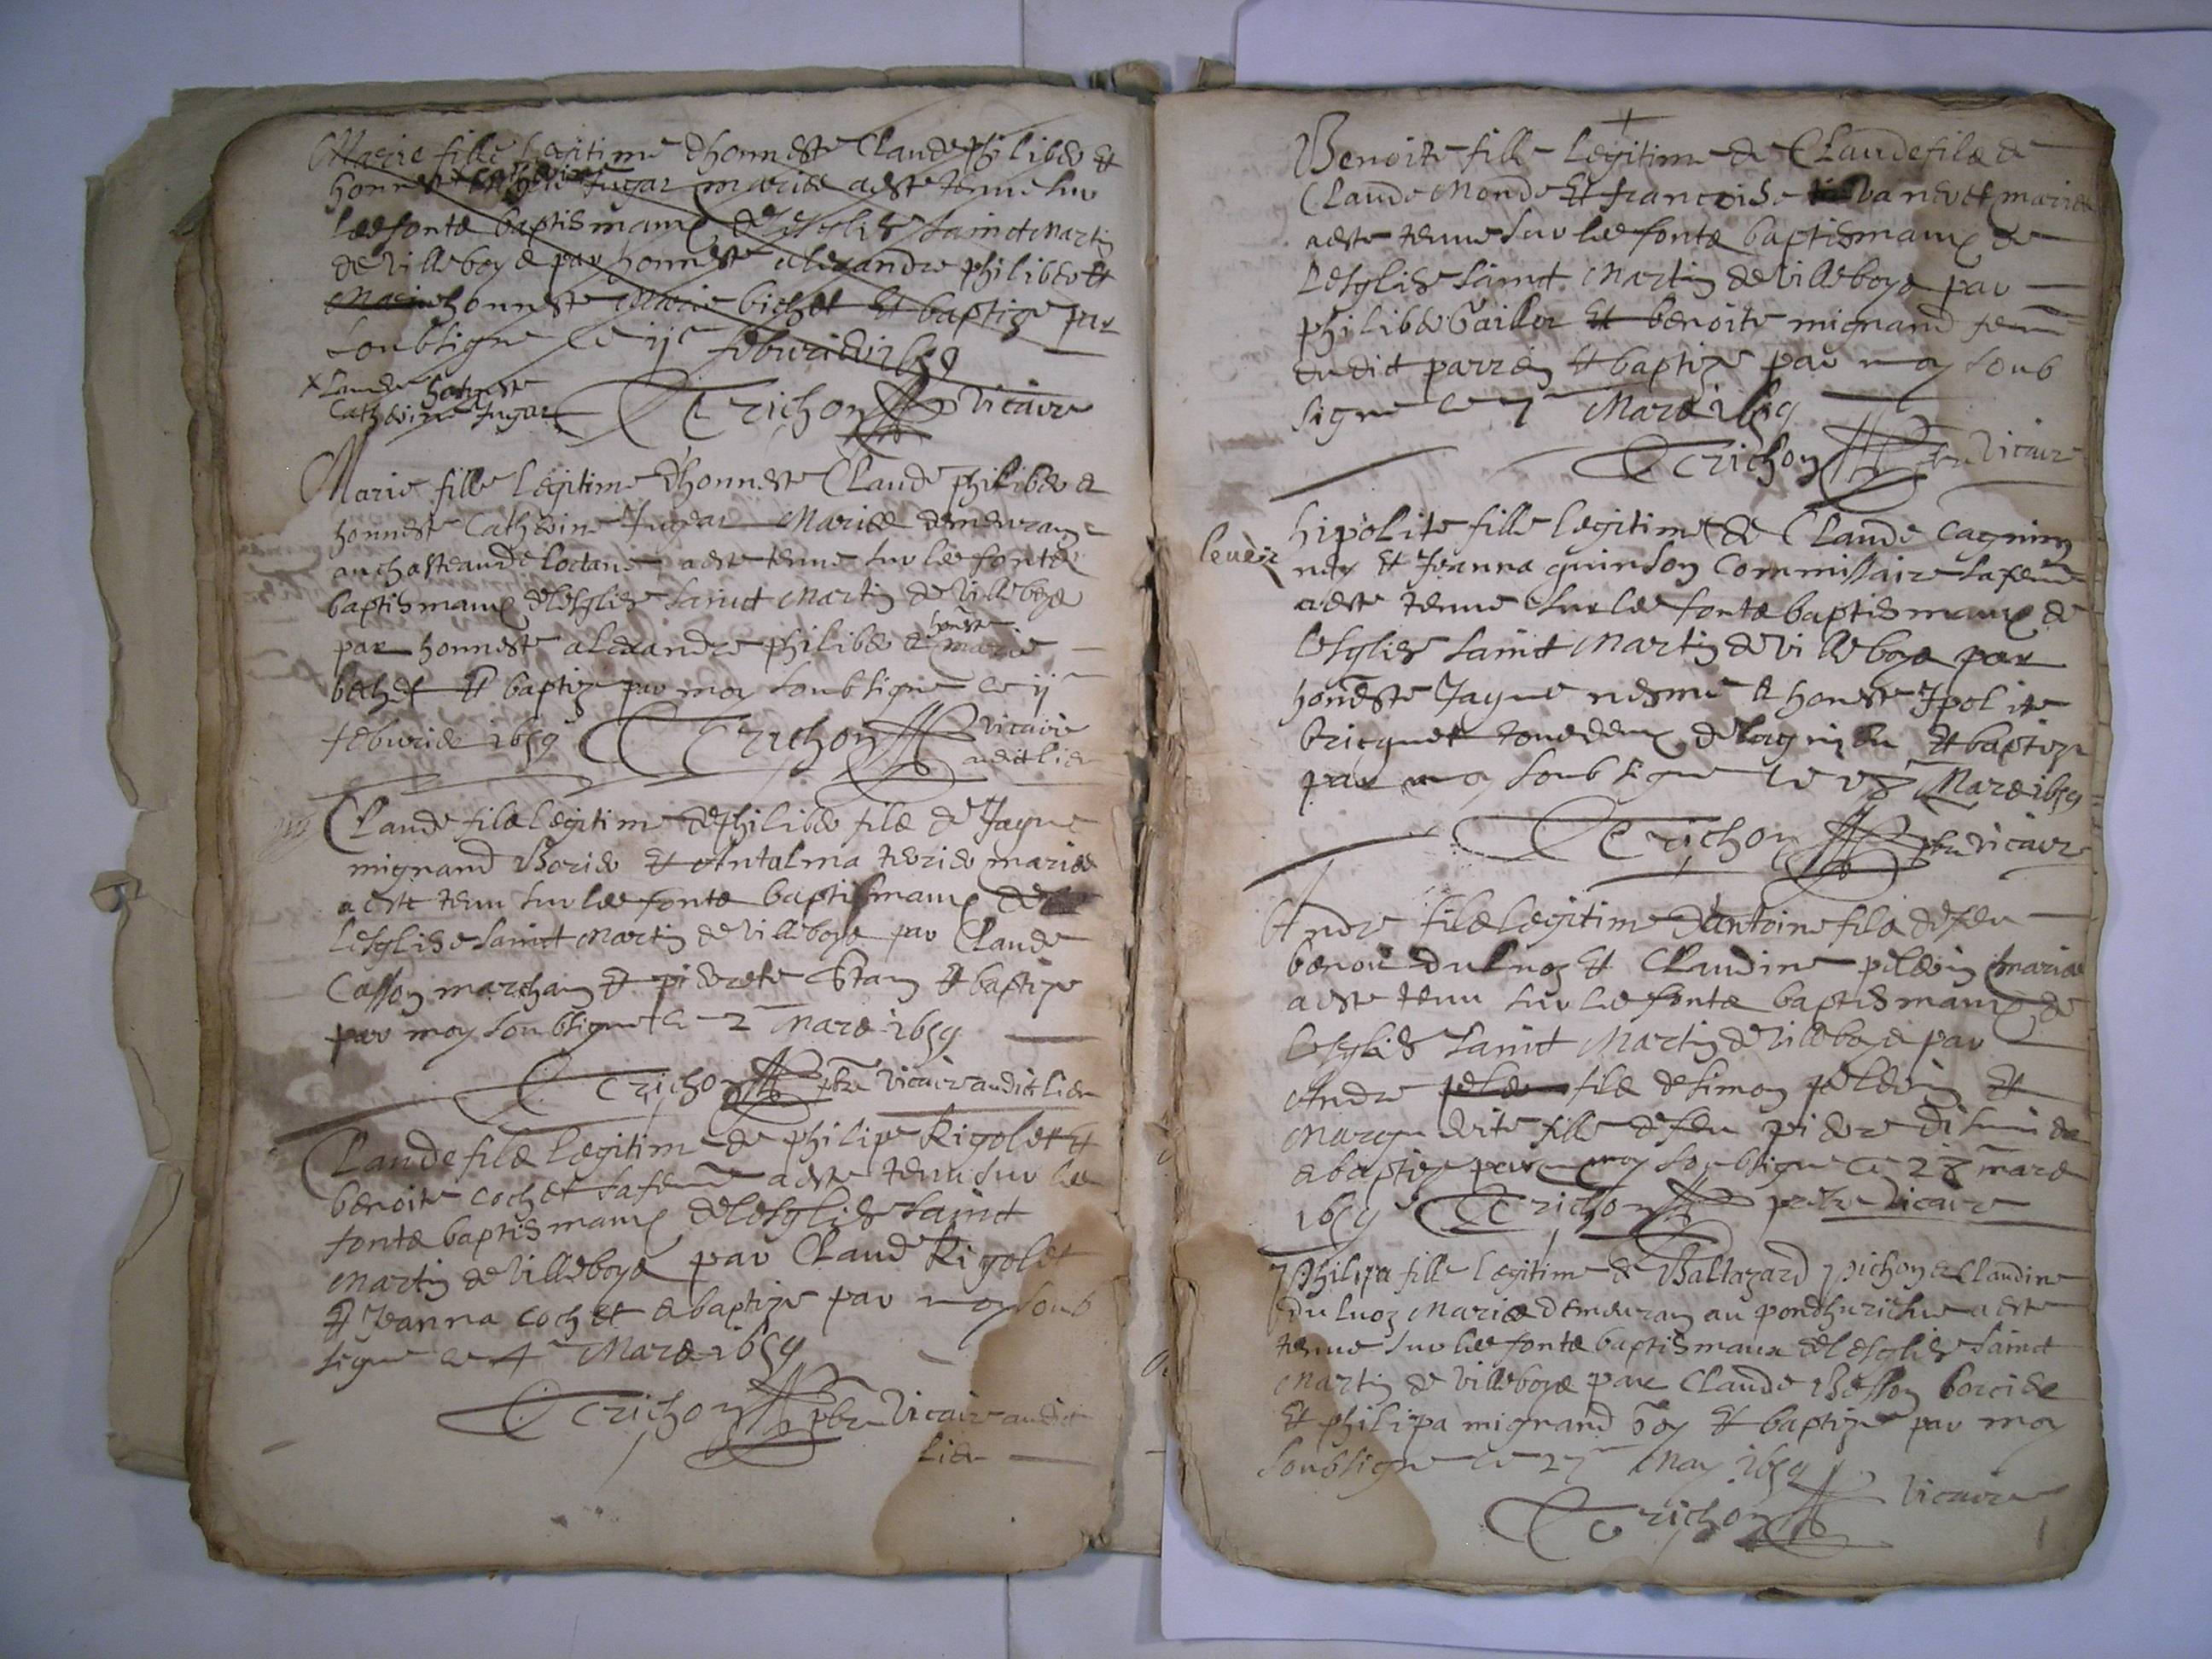 Marie fille legitime dhonneste Claude philiber et
honneste Catherine Jugar mariés a esté tenue sur
les fonts baptismaux de lesglise sainct Martin
de Villeboys par honneste alexandre philiber et
honneste Marie bichet et baptizé par
soubsigné ce ij febvrier 1659
x honneste
Catherine Jugar
Trichon vicaire
Marie fille legitime dhonneste Claude philiber et
honneste Catherine Jugar Mariés demeurans
au chasteau de a esté tenue sur les fonts
baptismaux de lesglise sainct Martin de Villeboys
par honneste alexandre philiber et honeste marie
bichet et baptizé par moy soubsigné ce ij
febvrier 1659 Trichon vicaire
audict lieu
Claude fils legitime de philiber fils de Jaque
mignand Borier et Antalma mariés
a esté tenu sur les fonts baptismaux de
lesglise sainct Martin de Villeboys par Claude
Casson marchan et pierrete et baptizé
par moy soubsigné ce 2 Mars 1659
Trichon pbre vicaire audict lieu
Claude fils legitime de philipe Rigolet et
benoite cochet sa feme a esté tenu sur les
fonts baptismaux de lesglise sainct
Martin de Villeboys par Claude Rigolet
et Jeanna cochet et baptizé par moy soub
signé ce 4 Mars 1659
Trichon pbre vicaire audict
lieu
Benoite fille legitime de Claude fils de
Claude Monde et francoise mariés
a esté tenue sur les fonts baptismaux de
lesglise sainct Martin de Villeboys par
philiber et benoite mignand feme
du dict parrein et baptizé par moy soub
signé ce 7 Mars 1659
Trichon pbre vicaire
hipolite fille legitime de Claude
et Jeanna quinson Commissaire sa feme
a esté tenue sur les fonts baptismaux de
lesglise sainct Martin de Villeboys par
honeste Jaque nesme et honeste Ipolite
bricquet tous deux de lagnieu et baptizé
par moy soubsigné le Mars 1659
Trichon pbre vicaire
Andre fils legitime dantoine fils de feu
benoit duluoz et Claudine pelletin mariés
a esté tenu sur les fonts baptismaux de
lesglise sainct Martin de Villeboys par
Andre fils de simon pelletin et
Marguerite fille de feu pierre
et baptizé par moy soubsigné ce 28 mars
1659 Trichon pretre vicaire
Philipa fille legitime de Baltazard pichon et Claudine
duluoz Mariés demeuran au a esté
tenue sur les fonts baptismaux de lesglise sainct
Martin de Villeboys par Claude Besson borcier
et philipa mignand et baptizé par moy
soubsigné ce 27 May 1659
Trichon vicaire